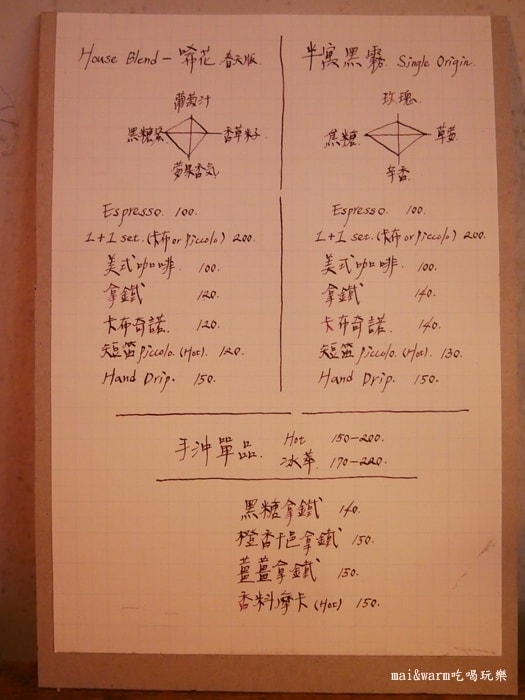 House Blend - 唏花 春天版
葡萄汁
黑糖漿 香草籽
蘋果香気
Espresso. 100.
1+1 set.(卡布 or piccolo) 200.
美式咖啡. 100.
拿鐵 120.
卡布奇諾. 120.
短笛 piccolo. (Hot). 120.
Hand Drip. 150.
半寓黑霧 Single Origin.
玫瑰
焦糖 草莓
辛香
Espresso. 100.
1+1 set.(卡布 or piccolo) 200.
美式咖啡. 100.
拿鐵 140.
卡布奇諾. 140.
短笛 piccolo. (Hot). 130.
Hand Drip. 150.
手沖單品. Hot 150-200.
冰萃. 170-220.
黑糖拿鐵 140.
橙香卡邑拿鐵 150.
薑薑拿鐵 150.
香料摩卡 (Hot) 150.
mai&warm吃喝玩樂